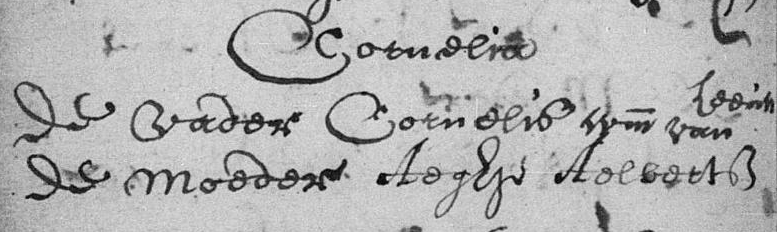 Cornelia
De Vader Cornelis van Leeuw
De Moeder Aeghje Aelberts